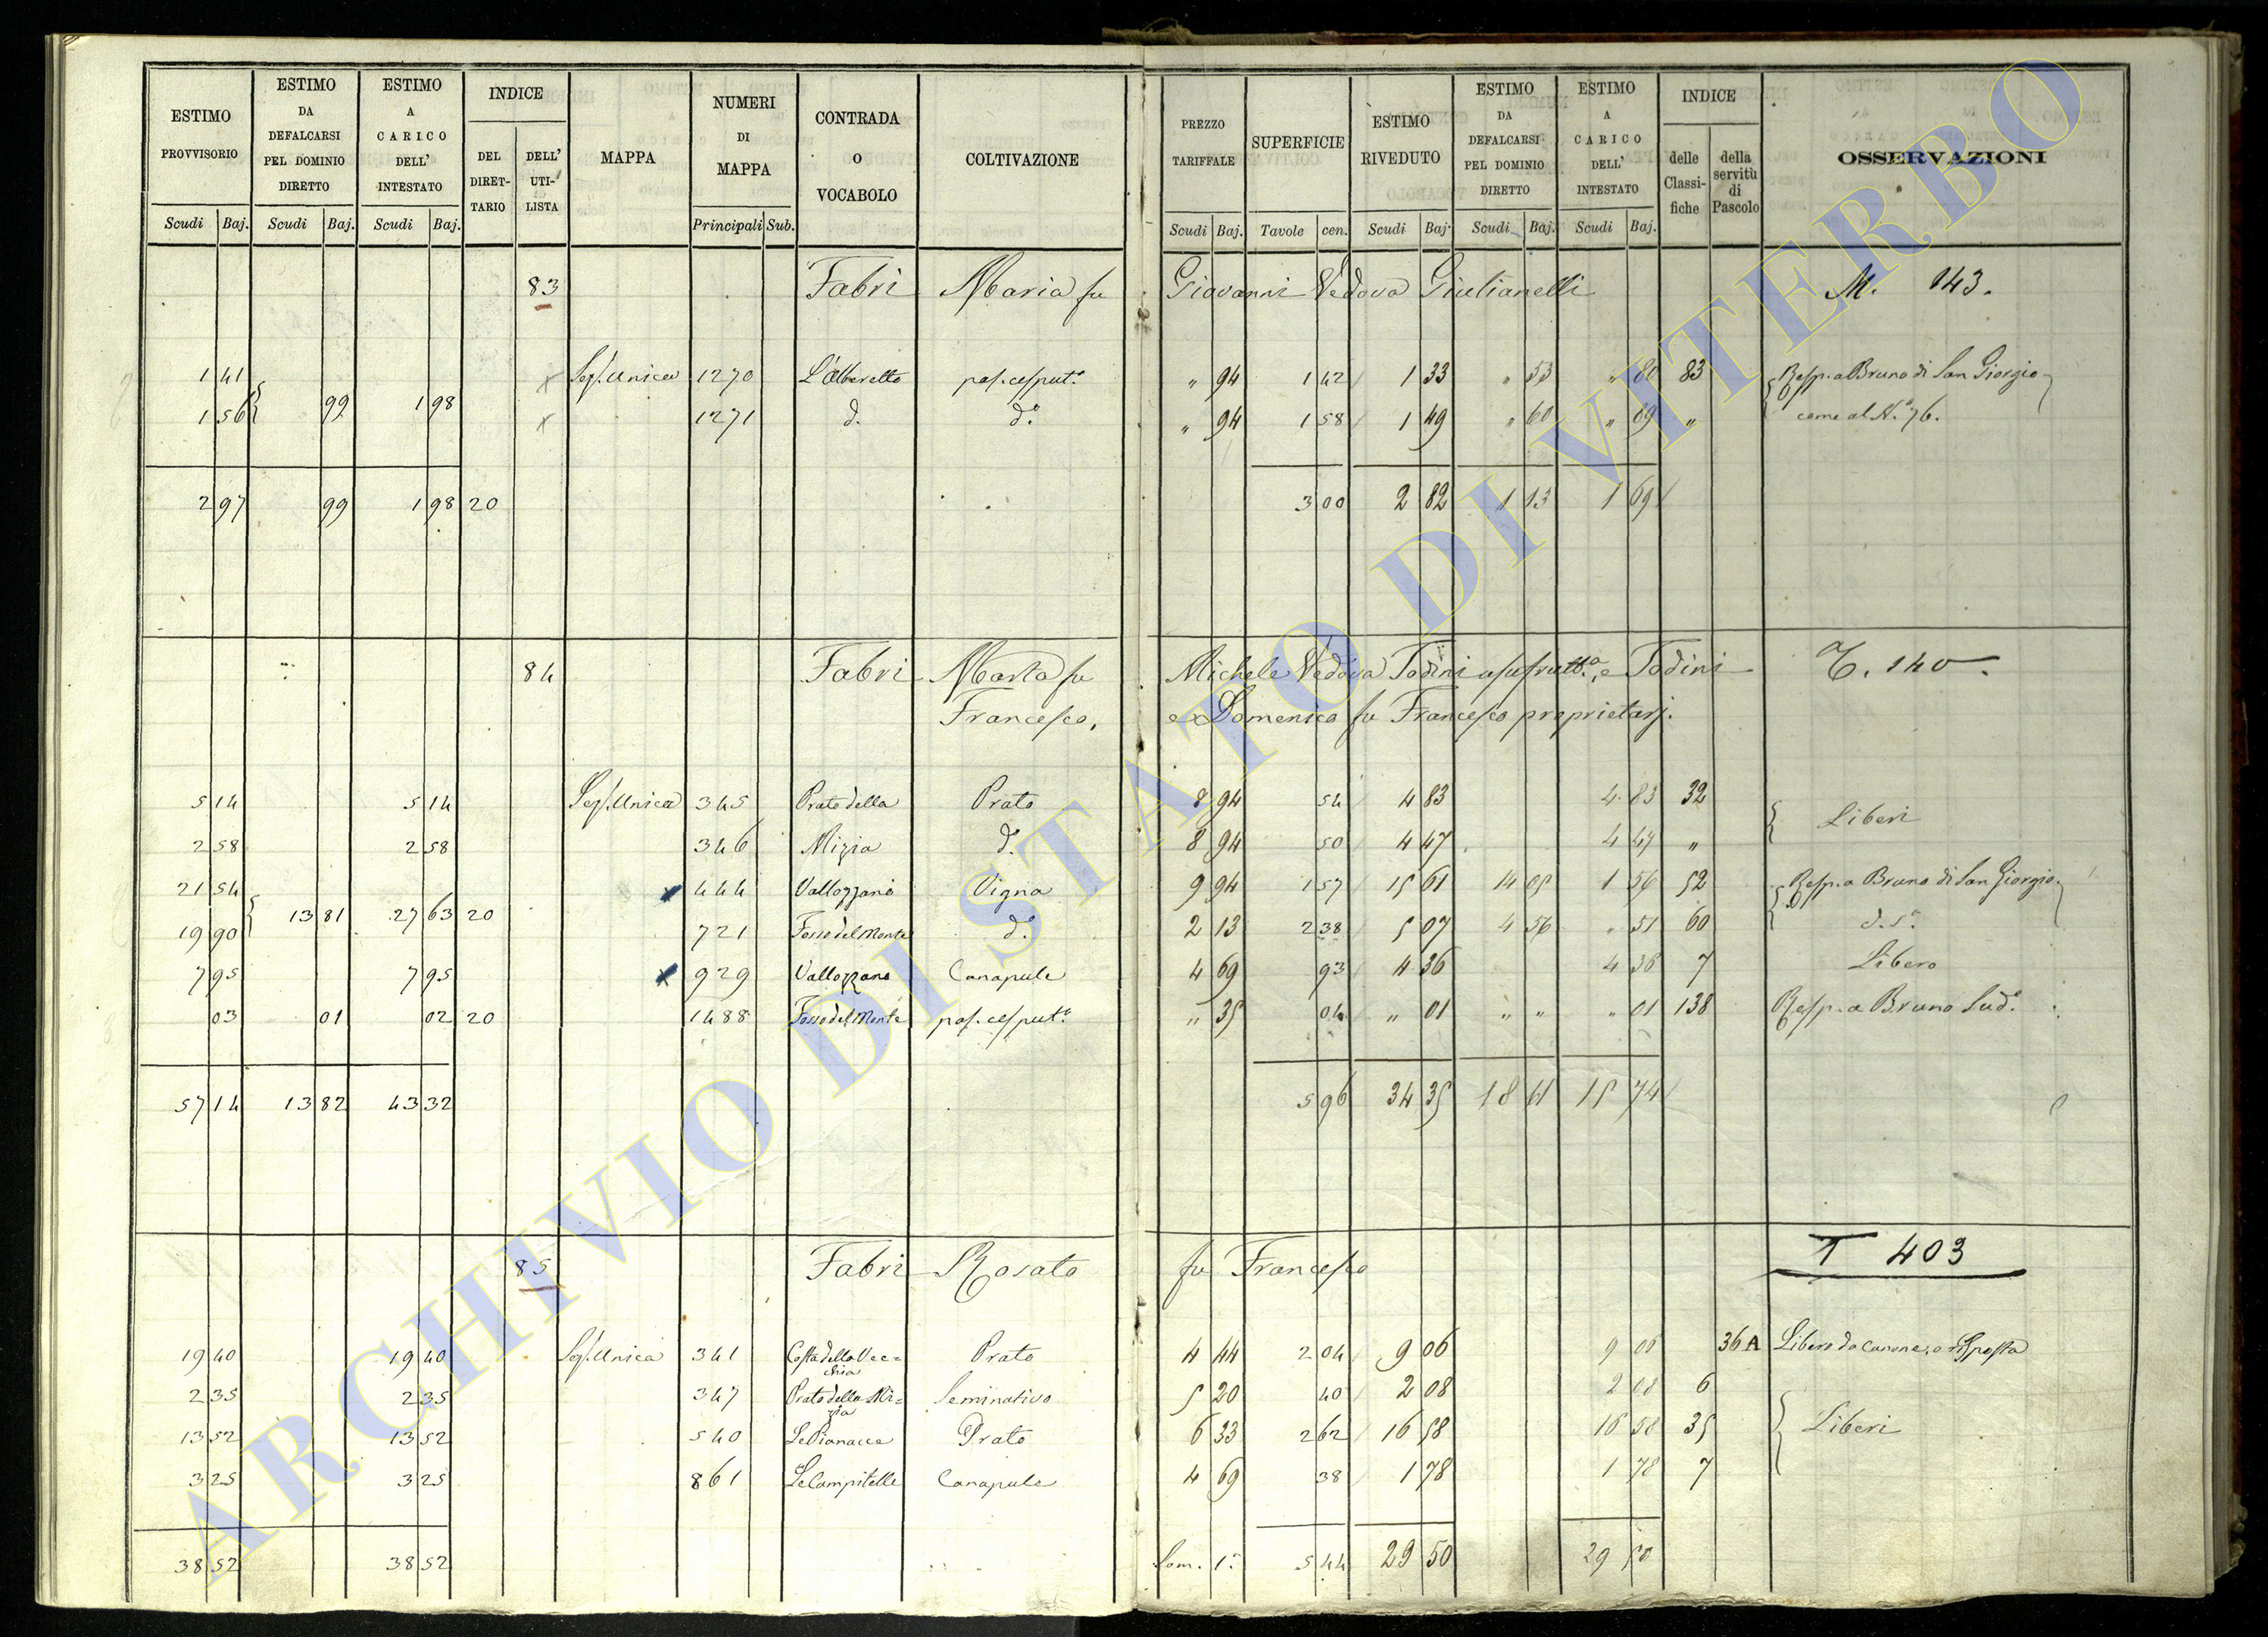 ESTIMO PROVVISORIO | ESTIMO DA DEFALCARSI PEL DOMINIO DIRETTO | ESTIMO A CARICO DELL' INTESTATO | INDICE | MAPPA | NUMERI DI MAPPA | CONTRADA O VOCABOLO | COLTIVAZIONE | PREZZO TARIFFALE | SUPERFICIE | ESTIMO RIVEDUTO | ESTIMO DA DEFALCARSI PEL DOMINIO DIRETTO | ESTIMO A CARICO DELL' INTESTATO | INDICE | OSSERVAZIONI
DEL DIRET-TARIO | DELL' UTI-LISTA | delle Classi-fiche | della servitù di Pascolo
Scudi | Baj. | Scudi | Baj. | Scudi | Baj. | Principali | Sub. | Scudi | Baj. | Tavole | cen. | Scudi | Baj. | Scudi | Baj. | Scudi | Baj.
83 Fabri Maria fu Giovanni Vedova Giulianelli M. 143.
1 41 Sez. Unica 1270 L'Alberetto pas. cesput.º " 94 1 42 1 33 " 53 " 80 83 Resp. a Bruno di San Giorgio
1 56 99 1 98 1271 d. d.º " 94 1 58 1 49 " 60 " 89 " come al N.º 76.
2 97 99 1 98 20 3 00 2 82 1 13 1 69
84 Fabri Marta fu Michele Vedova Todini usufrutt.ª, e Todini T. 140
Francesco, e Domenico fu Francesco proprietarj.
5 14 5 14 Sez. Unica 345 Prato della Prato 8 94 54 4 83 4 83 32 Liberi
2 58 2 58 346 Mizia d.º 8 94 50 4 47 4 47 "
21 54 444 Vallozzano Vigna 9 94 1 57 15 61 14 05 1 56 52 Resp. a Bruno di San Giorgio
19 90 13 81 27 63 20 721 Fosso del Monte d.º 2 13 2 38 5 07 4 56 " 51 60
7 95 7 95 929 Vallozzano Canapule 4 69 93 4 36 4 36 7 Libero
03 01 02 20 1488 Fosso del Monte pas. cesput.º " 35 04 " 01 " " " 01 138 Resp. a Bruno Sud.º
57 14 13 82 43 32 5 96 34 35 18 61 15 74
85 Fabri Rosato fu Francesco T 403
19 40 19 40 Sez. Unica 341 Costa della Vec=chia Prato 4 44 2 04 9 06 9 06 36 A Libero da canone, o risposta
2 35 2 35 347 Prato della Mi=zia Seminativo 5 20 40 2 08 2 08 6
13 52 13 52 540 Le Pianacce Prato 6 33 2 62 16 58 16 58 35 Liberi
3 25 3 25 861 Le Campitelle Canapule 4 69 38 1 78 1 78 7
38 52 38 52 Som. 1ª 5 44 29 50 29 50
ARCHIVIO DI STATO DI VITERBO